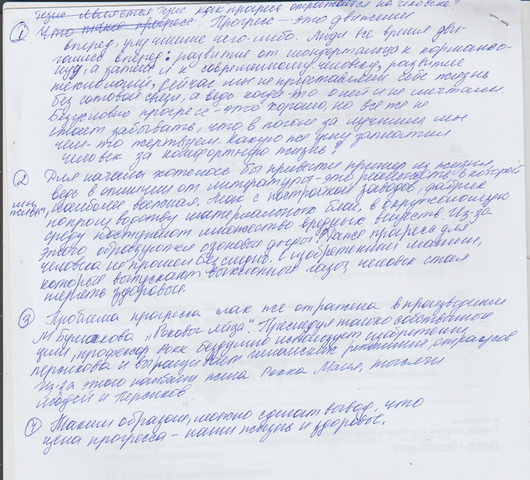 тезис является тезис как прогресс отражается на человеке?
① Что такое прогресс Прогресс - это движение
вперед, улучшение чего-либо. Люди все время дви-
гались вперед: развитие от неандертальца к кроманьо-
нцу, а затем и к современному человеку, развитие
технологий, сейчас мы не представляем себе жизнь
без сотовой связи, а ведь когда-то о ней и не мечтали
Безусловно прогресс - это хорошо, но все же не
стоит забывать, что в погоне за лучшим мы
чем-то жертвуем. Какую же цену заплатил
человек за комфортную жизнь?
② Для начала хотелось бы привести пример из жизни,
ведь в отличии от литературы - это реальность, в которой
мы живем, наиболее важная. Так с постройкой заводов, фабрик
по производству материальных благ, в окружающую
среду поступают множество вредных веществ. Из-за
этого образуются озоновые дыры! Также прогресс для
человека не прошел бесследно. С изобретением машин,
которые выпускают выхлопные газы, человек стал
терять здоровье.
③ Проблема прогресса так же отражена в произведении
М Булгакова „Роковые яйца". Преследуя только собственные
цели, профессор Рокк бездумно использует изобретение
Персикова и выращивает гигантских рептилий, страусов
Из-за этого погибли жена Рокка Маня, тысячи
людей и Персиков
④ Таким образом, можно сделать вывод, что
цена прогресса - наши жизнь и здоровье.